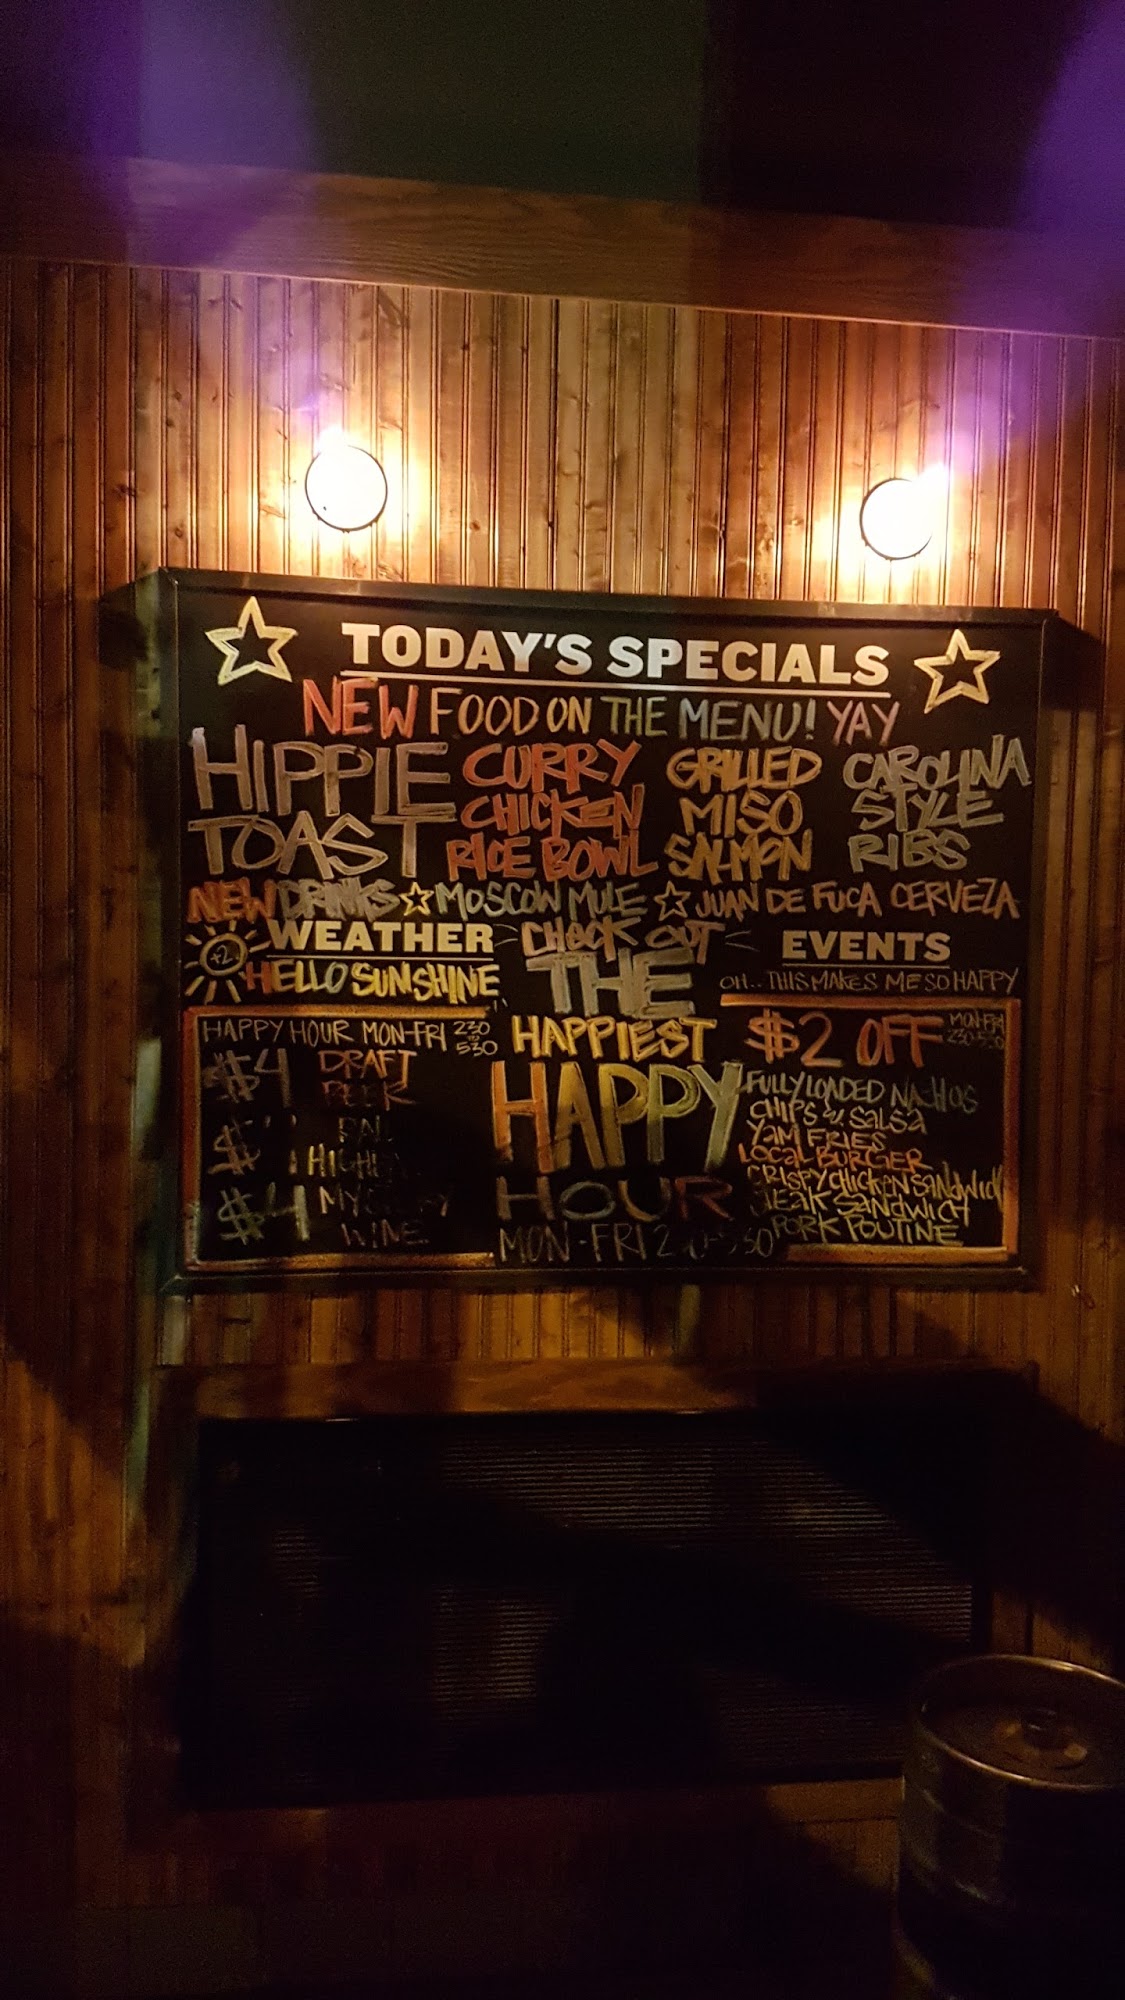 TODAY'S SPECIALS
NEW FOOD ON THE MENU! YAY
HIPPIE
TOAST
CURRY
CHICKEN
RICE BOWL
GRILLED
MISO
SALMON
CAROLINA
STYLE
RIBS
NEW DRINKS ☆ MOSCOW MULE ☆ JUAN DE FUCA CERVEZA
WEATHER
HELLO SUNSHINE
CHECK OUT
THE
HAPPIEST
HAPPY
HOUR
MON-FRI
EVENTS
OH.. THIS MAKES ME SO HAPPY
HAPPY HOUR MON-FRI 230 TO 530
$4 DRAFT
BEER
$4
WINE
$2 OFF MON-FRI
230-530
FULLY LOADED NACHOS
CHIPS W. SALSA
YAM FRIES
LOCAL BURGER
CRISPY CHICKEN SANDWICH
STEAK SANDWICH
PORK POUTINE